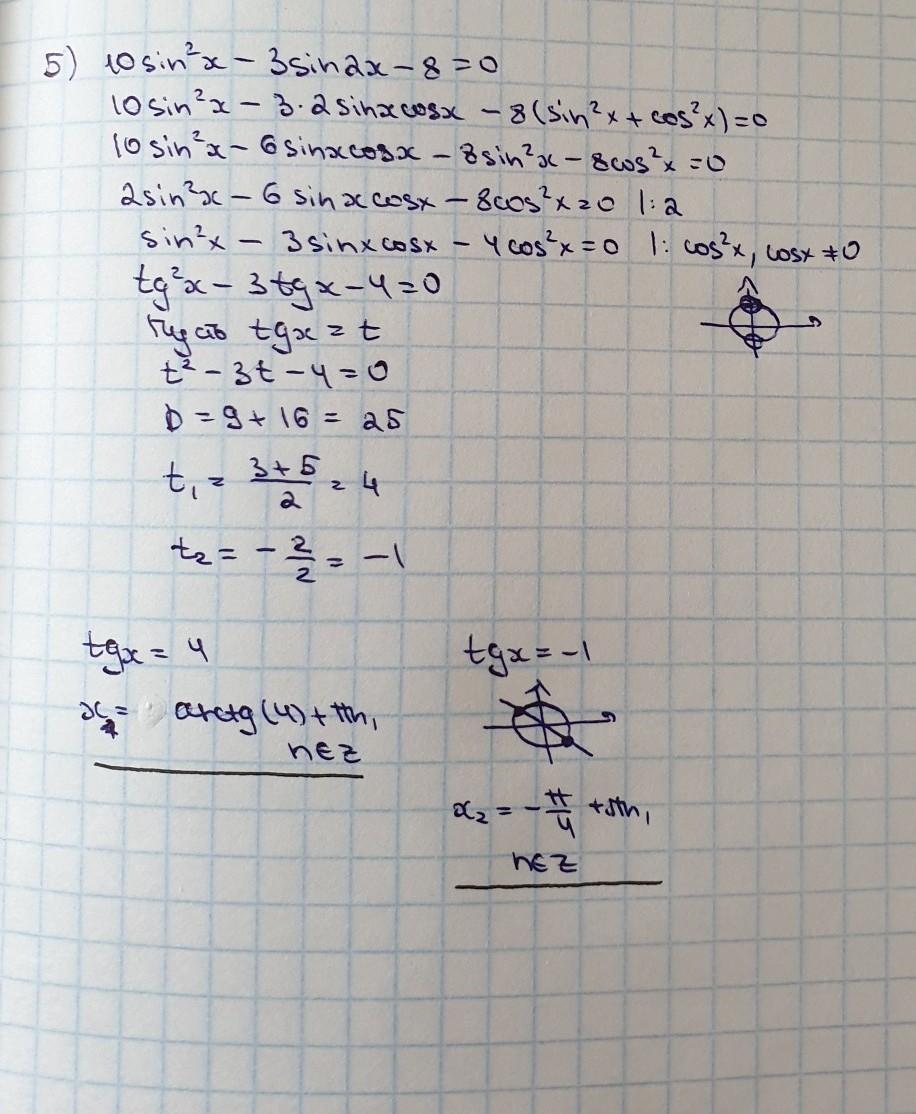 5) 10sin²x − 3sin2x − 8 = 0
10sin²x − 3·2sinxcosx − 8(sin²x + cos²x) = 0
10sin²x − 6sinxcosx − 8sin²x − 8cos²x = 0
2sin²x − 6sinxcosx − 8cos²x = 0 |:2
sin²x − 3sinxcosx − 4cos²x = 0 |: cos²x, cosx ≠ 0
tg²x − 3tgx − 4 = 0
Пусть tgx = t
t² − 3t − 4 = 0
D = 9 + 16 = 25
t₁ = (3+5)/2 = 4
t₂ = −2/2 = −1
tgx = 4
x₁ = arctg(4) + πn,
n∈Z
tgx = −1
x₂ = −π/4 + πn,
n∈Z